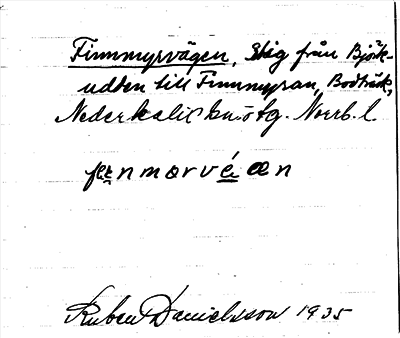 Finnmyrvägen, Stig från Björk-
udden till Finnmyran, Bodträsk,
Nederkalix kn-o tg. Norrb. l.
Ruben Danielsson 1935